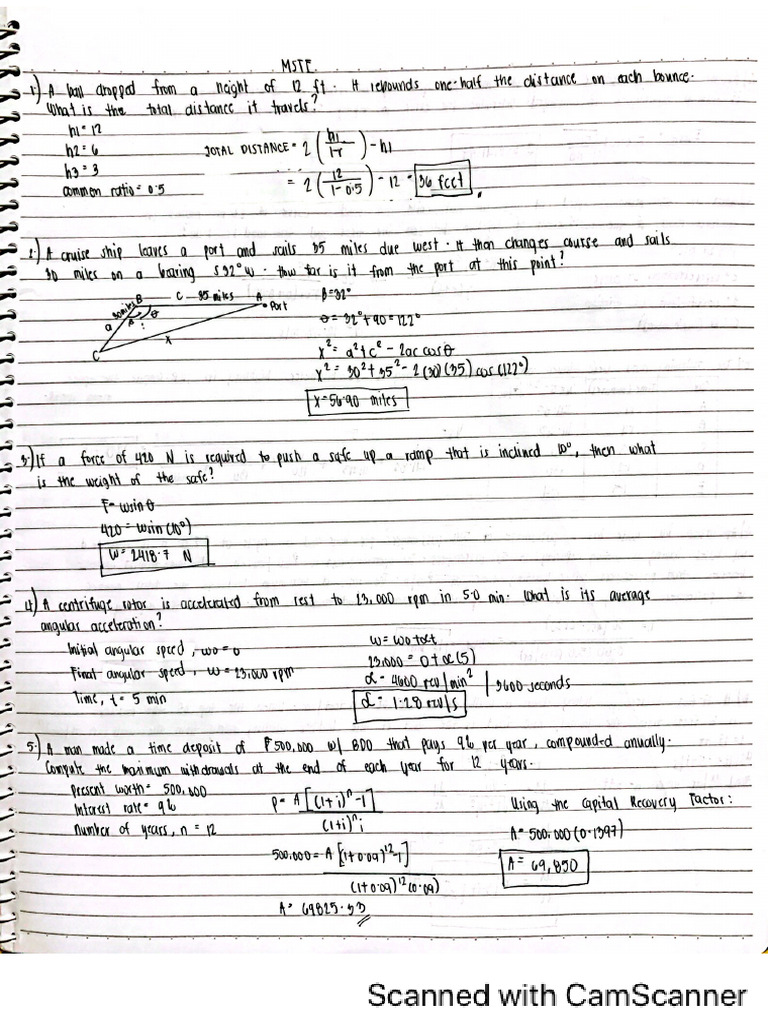 MSTE
1.) A ball dropped from a height of 12 ft. It rebounds one-half the distance on each bounce.
What is the total distance it travels?
h1 = 12
h2 = 6
h3 = 3
common ratio = 0.5
TOTAL DISTANCE = 2 (h1/1-r) - h1
= 2 (12/1-0.5) - 12 = 36 feet.
2.) A cruise ship leaves a port and sails 35 miles due west. It then changes course and sails
30 miles on a bearing S 32° W. How far is it from the port at this point?
30 miles B C - 35 miles A
Port
a B θ
x
C
B = 32°
θ = 32° + 90 = 122°
x² = a² + c² - 2ac cosθ
x² = 30² + 35² - 2(30)(35) cos (122°)
x = 56.90 miles
3.) If a force of 420 N is required to push a safe up a ramp that is inclined 10°, then what
is the weight of the safe?
F = wsinθ
420 = wsin(10°)
W = 2418.7 N
4.) A centrifuge rotor is accelerated from rest to 23,000 rpm in 5.0 min. What is its average
angular acceleration?
Initial angular speed, ωo = 0
Final angular speed, ω = 23,000 rpm
Time, t = 5 min
ω = ωo + αt
23,000 = 0 + α(5)
α = 4600 rev/min² | 3600 seconds
α = 1.28 rev/s
5.) A man made a time deposit of ₱500,000 w/ BDO that pays 9% per year, compounded anually.
Compute the maximum withdrawals at the end of each year for 12 years.
Present worth = 500,000
Interest rate = 9%
number of years, n = 12
P = A [(1+i)ⁿ - 1]
(1+i)ⁿ i
500,000 = A [(1+0.09)¹² - 1]
(1+0.09)¹² (0.09)
A = 69825.33
Using the Capital Recovery Factor:
A = 500,000 (0.1397)
A = 69,850
Scanned with CamScanner